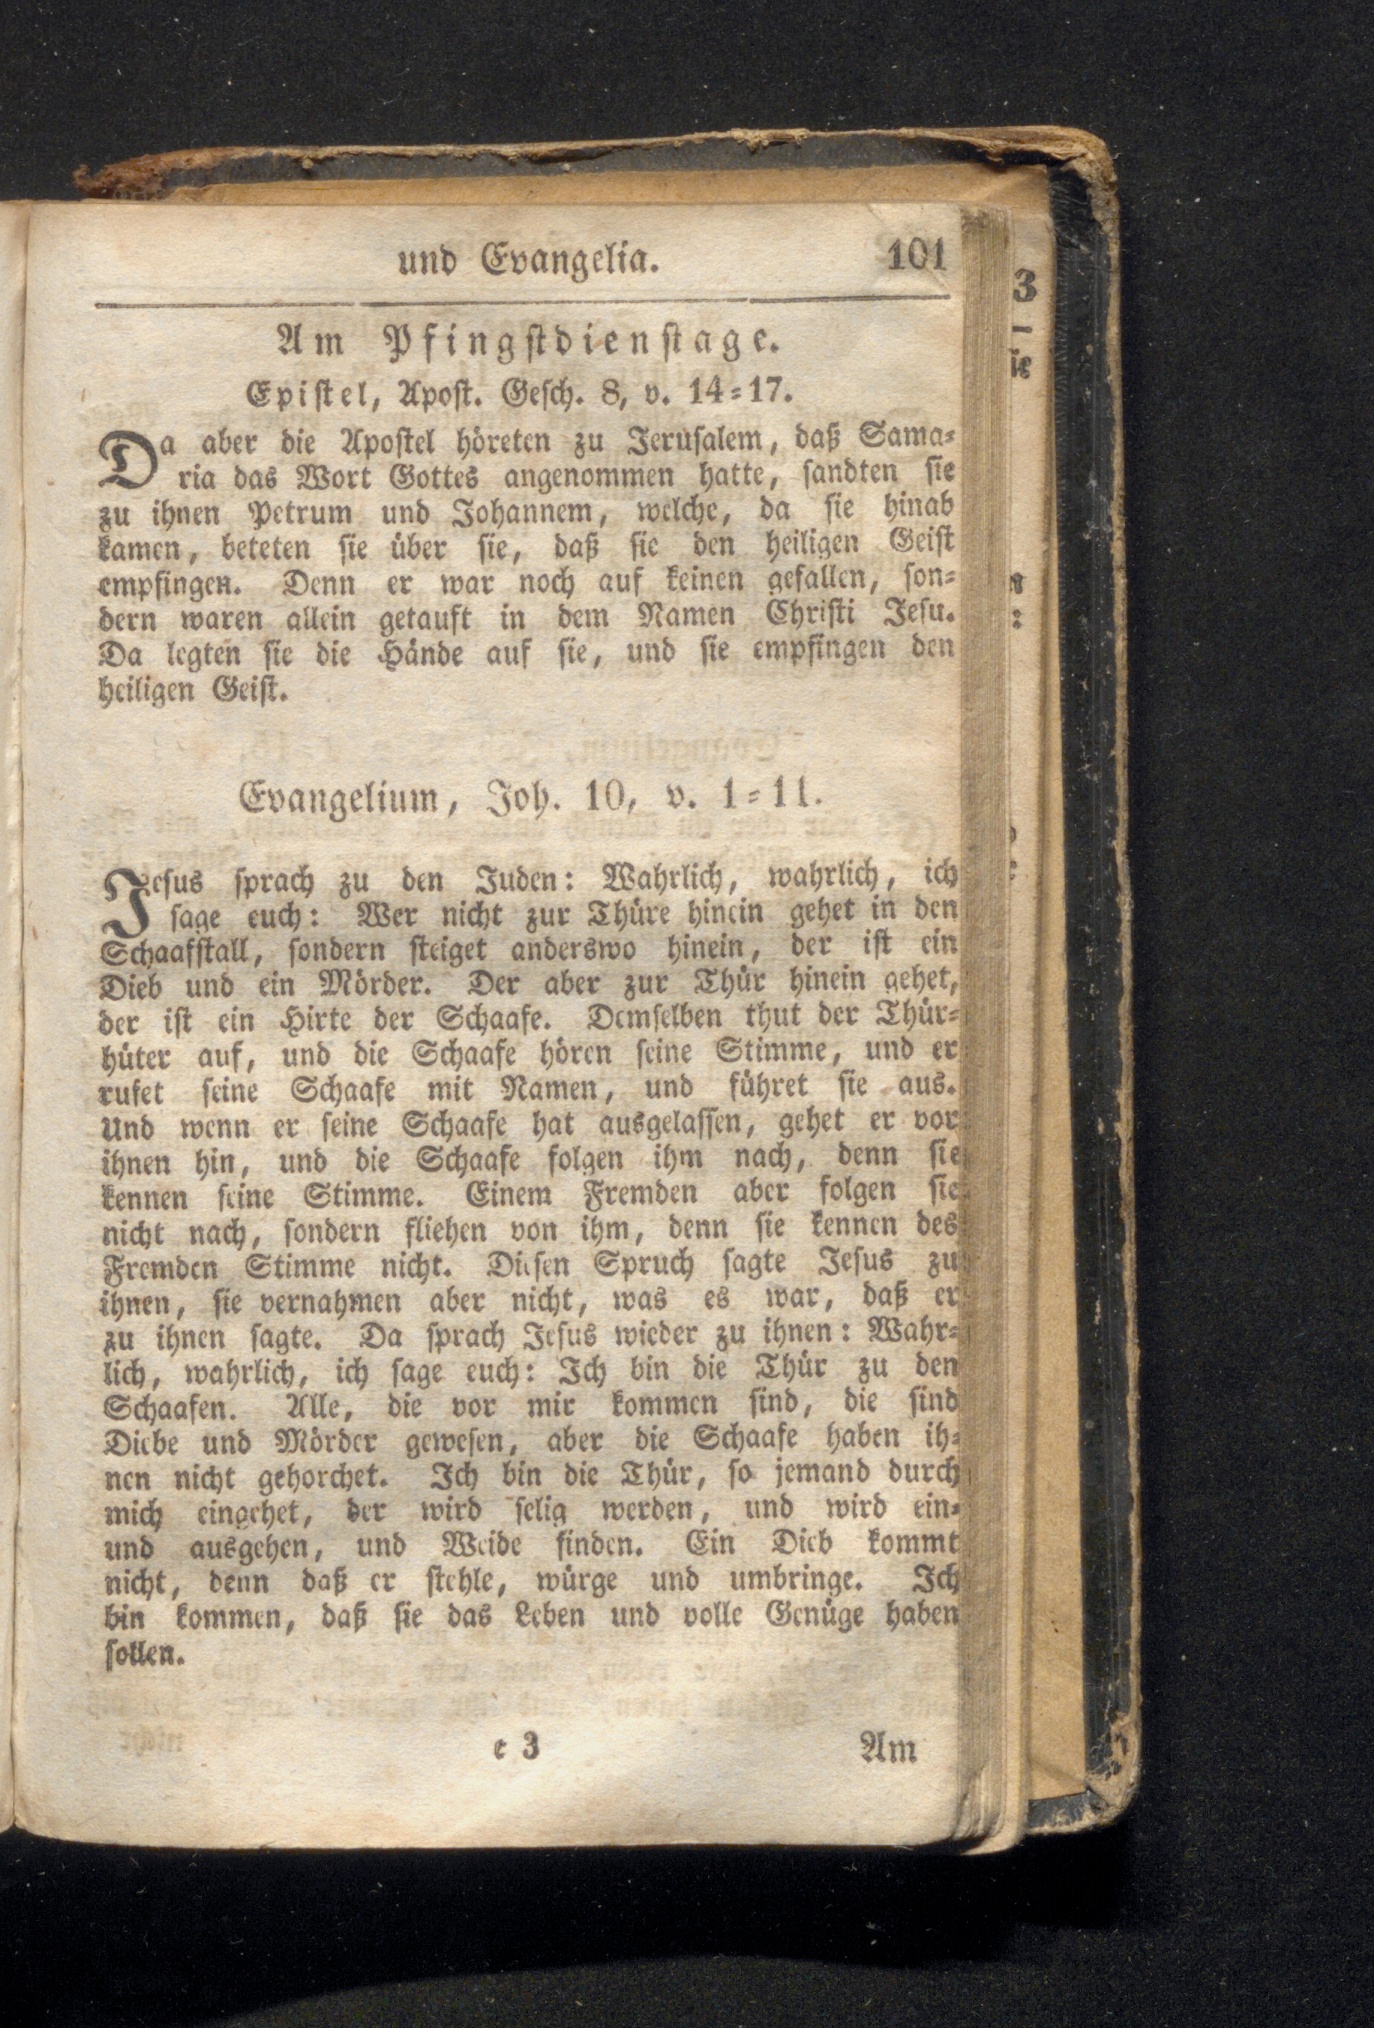 und Evangelia. 101
Am Pfingstdienstage.
Epistel, Apost. Gesch. 8, v. 14=17.
Da aber die Apostel höreten zu Jerusalem, daß Sama=
ria das Wort Gottes angenommen hatte, sandten sie
zu ihnen Petrum und Johannem, welche, da sie hinab
kamen, beteten sie über sie, daß sie den heiligen Geist
empfingen. Denn er war noch auf keinen gefallen, son=
dern waren allein getauft in dem Namen Christi Jesu.
Da legten sie die Hände auf sie, und sie empfingen den
heiligen Geist.
Evangelium, Joh. 10, v. 1=11.
Jesus sprach zu den Juden: Wahrlich, wahrlich, ich
sage euch: Wer nicht zur Thüre hinein gehet in den
Schaafstall, sondern steiget anderswo hinein, der ist ein
Dieb und ein Mörder. Der aber zur Thür hinein gehet,
der ist ein Hirte der Schaafe. Demselben thut der Thür=
hüter auf, und die Schaafe hören seine Stimme, und er
rufet seine Schaafe mit Namen, und führet sie aus.
Und wenn er seine Schaafe hat ausgelassen, gehet er vor
ihnen hin, und die Schaafe folgen ihm nach, denn sie
kennen seine Stimme. Einem Fremden aber folgen sie
nicht nach, sondern fliehen von ihm, denn sie kennen des
Fremden Stimme nicht. Diesen Spruch sagte Jesus zu
ihnen, sie vernahmen aber nicht, was es war, daß er
zu ihnen sagte. Da sprach Jesus wieder zu ihnen: Wahr=
lich, wahrlich, ich sage euch: Ich bin die Thür zu den
Schaafen. Alle, die vor mir kommen sind, die sind
Diebe und Mörder gewesen, aber die Schaafe haben ih=
nen nicht gehorchet. Ich bin die Thür, so jemand durch
mich eingehet, der wird selig werden, und wird ein=
und ausgehen, und Weide finden. Ein Dieb kommt
nicht, denn daß er stehle, würge und umbringe. Ich
bin kommen, daß sie das Leben und volle Genüge haben
sollen.
e 3 Am